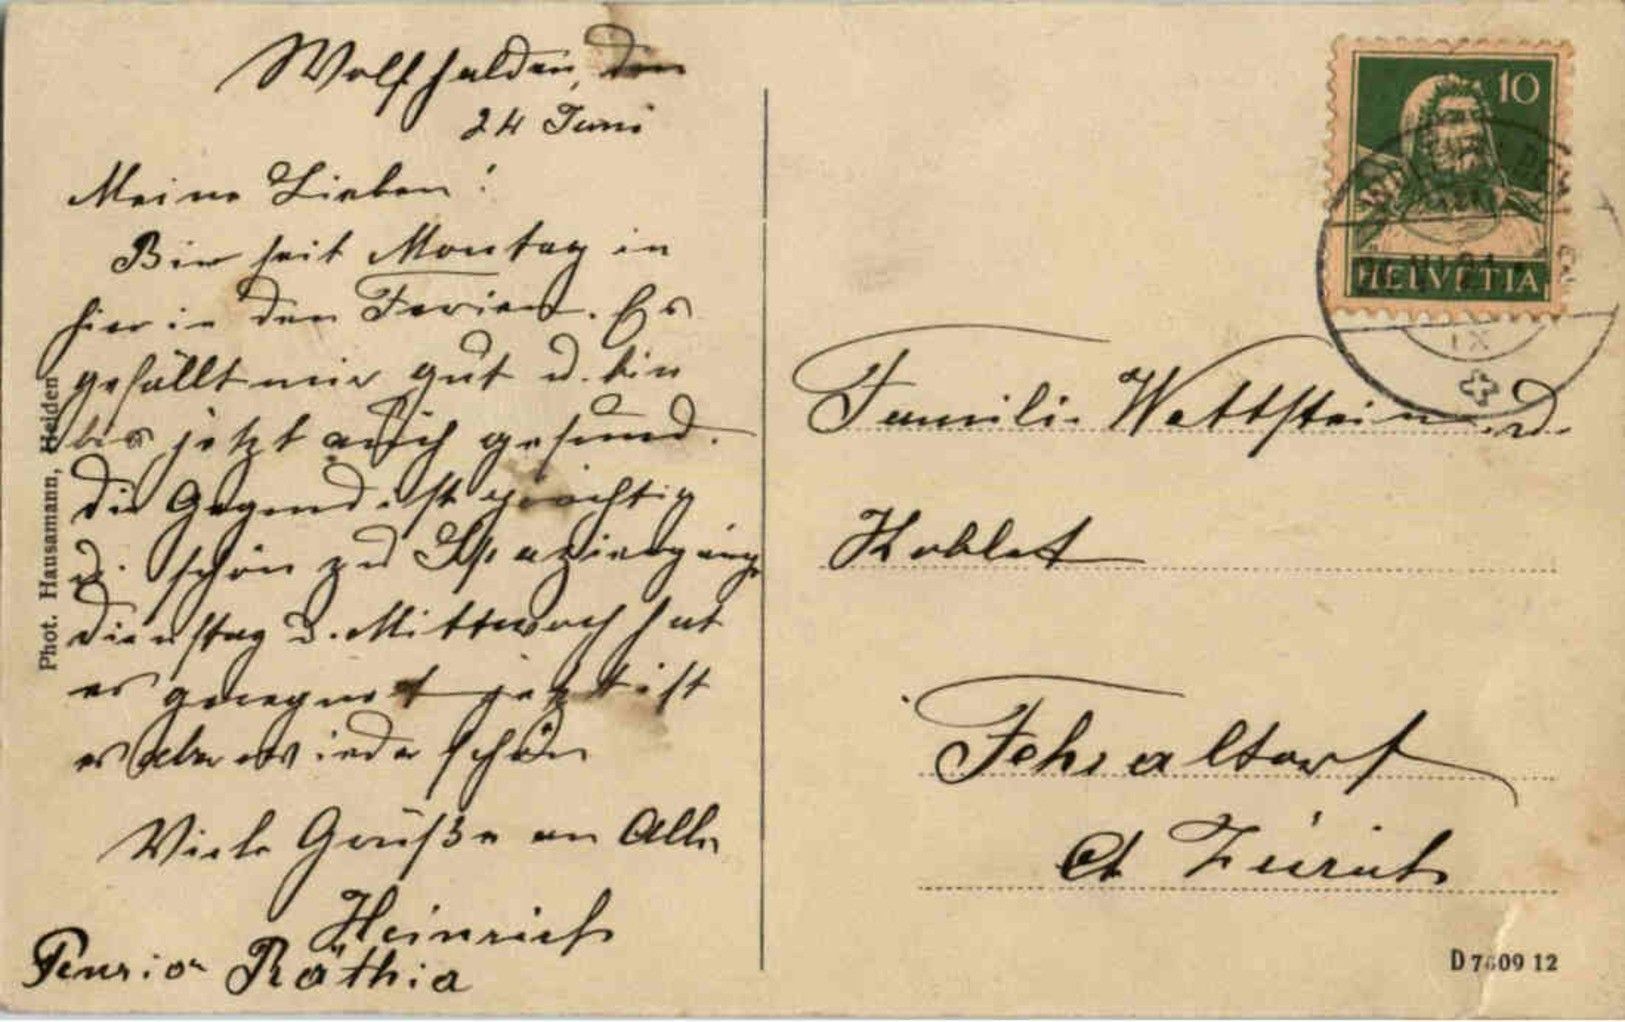 Wolfhalden, den
24 Juni
Meine Lieben!
Bin seit Montag in
hier in den Ferien. Es
gefällt mir gut u. bin
bis jetzt auch gesund.
Die Gegend ist prächtig
u. schön zu Spaziergänge
Dienstag u. Mittwoch hat
es geregnet jetzt ist
es aber wieder schön
Viele Grüße an Alle
Heinrich
Pension Räthia
Phot. Hausamann, Heiden
10
HELVETIA
IX
Familie Wettstein u.
Hoblet
Fehraltorf
Ct Zürich
D 7609 12